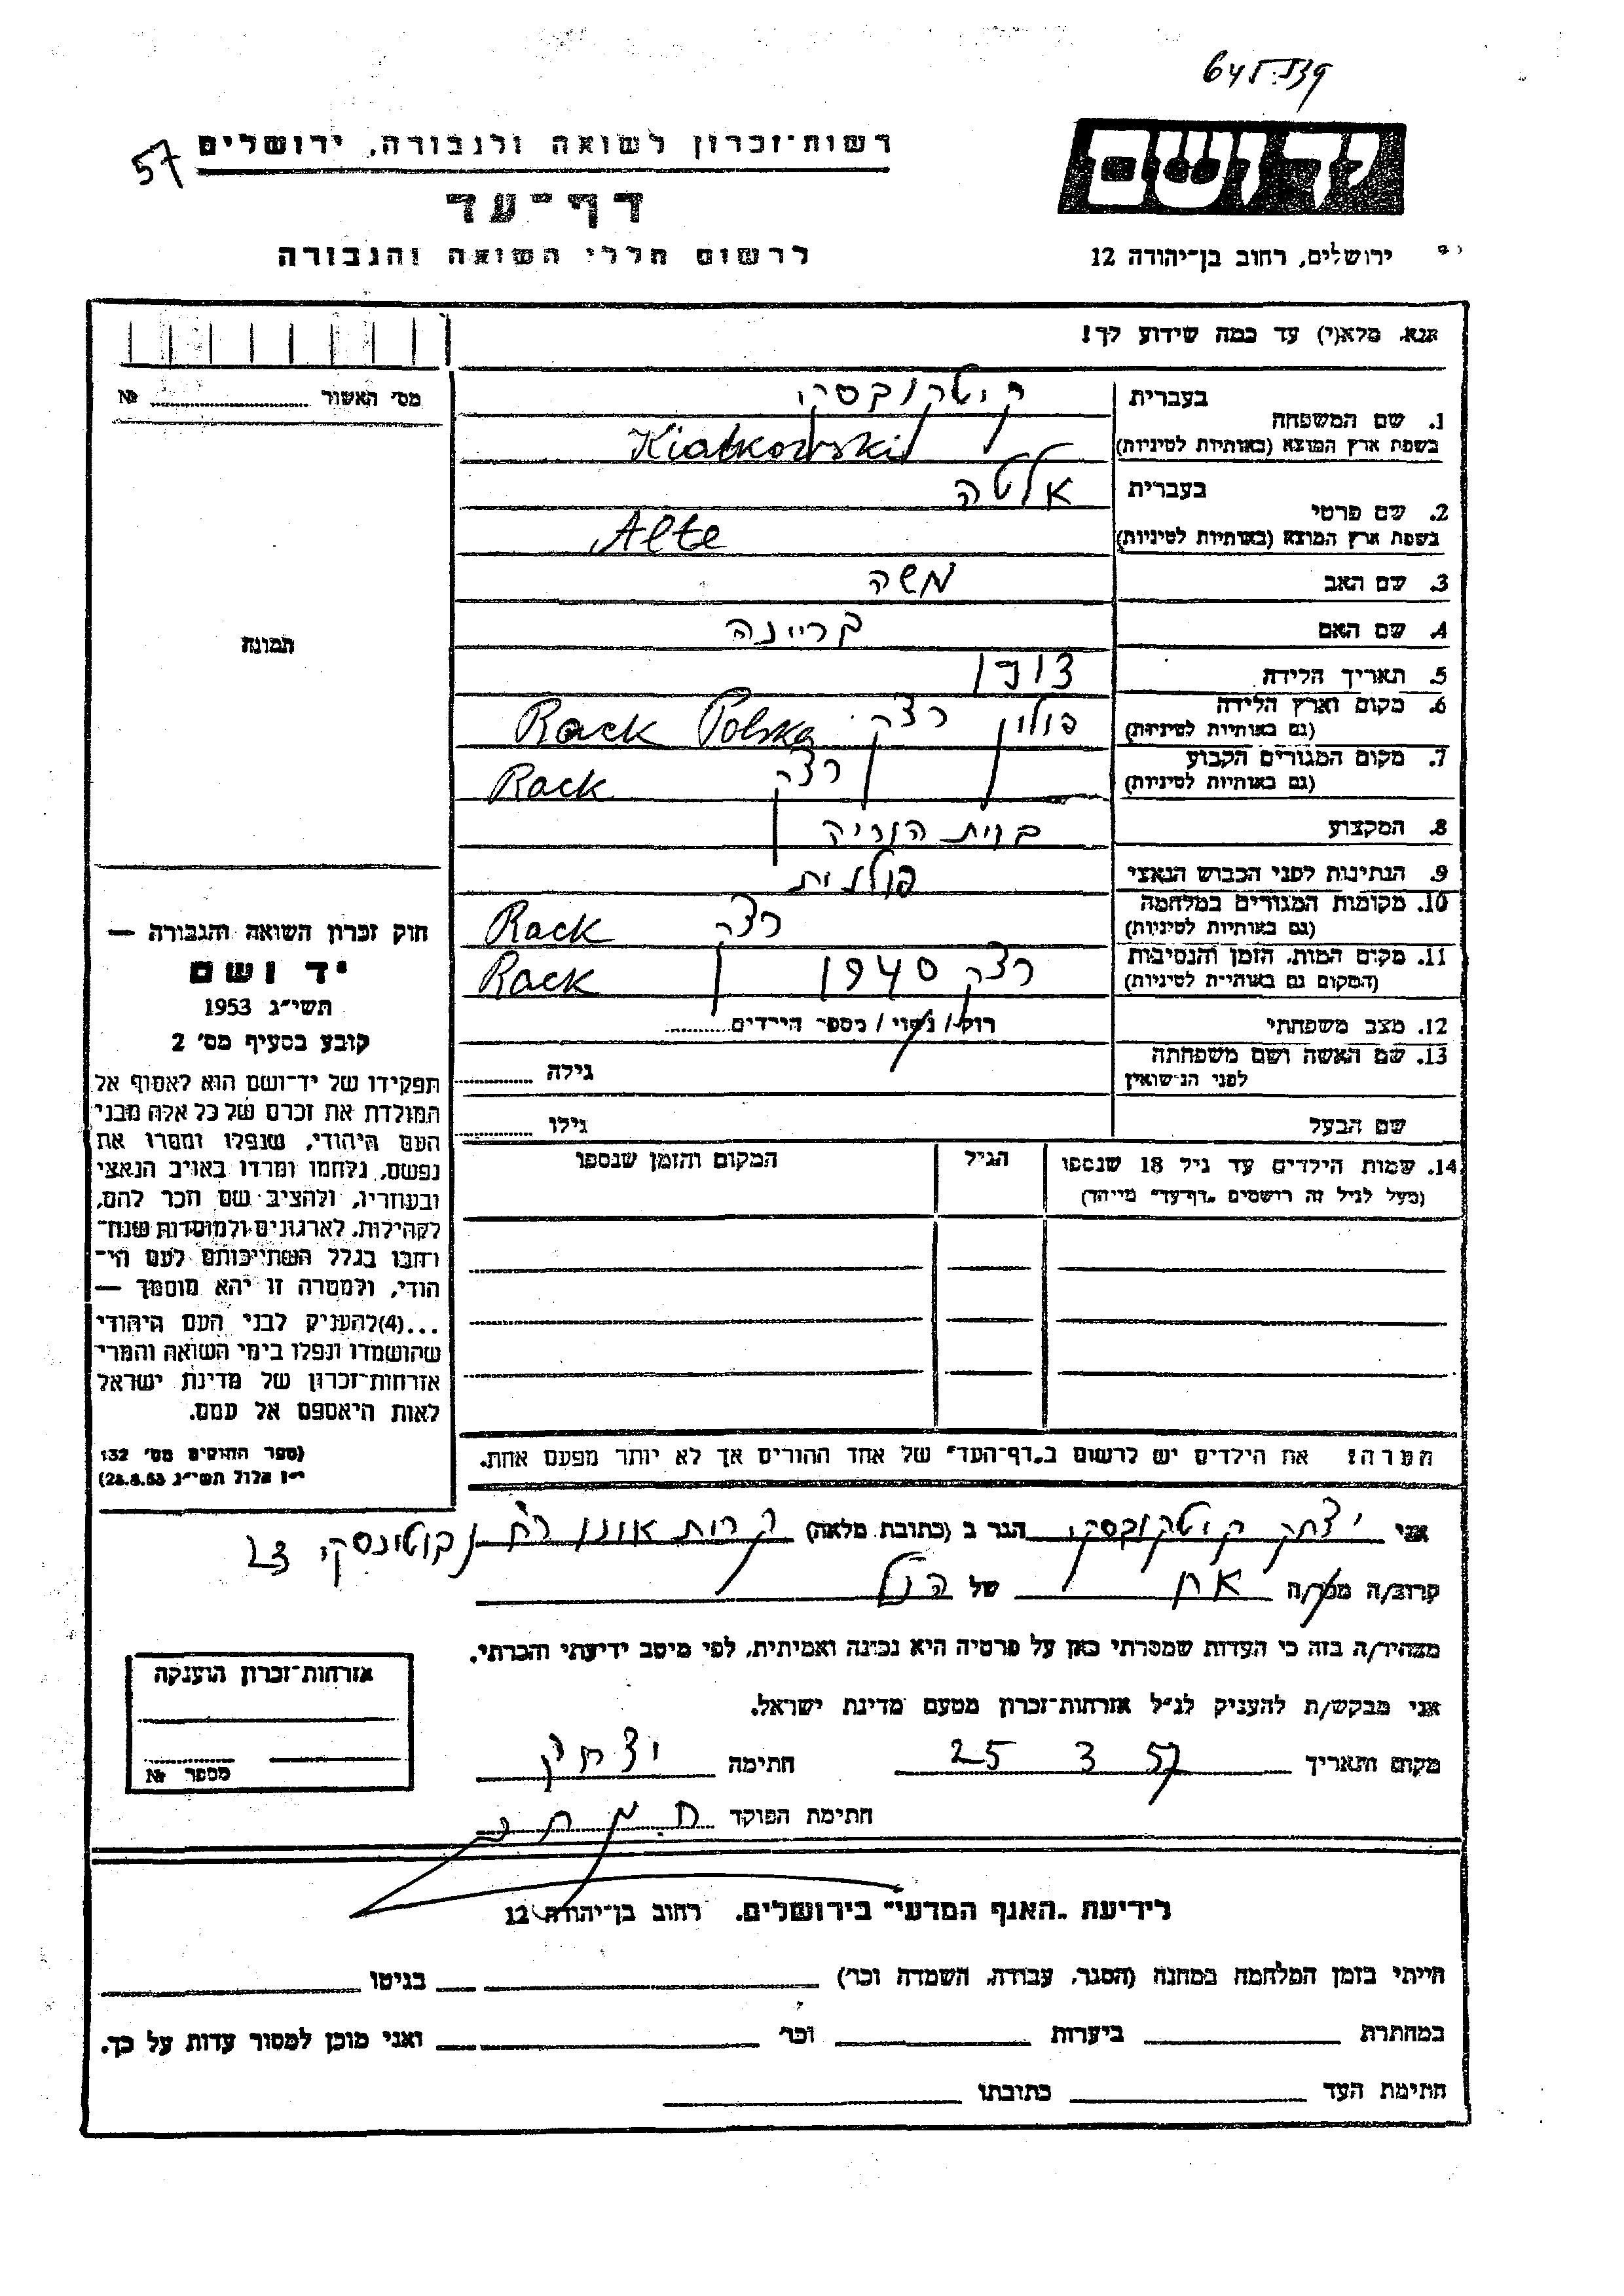 57
רשות־זכרון לשואה ולגבורה, ירושלים
דף־עד
לרשום חללי השואה והגבורה
יד ושם
ירושלים, רחוב בן־יהודה 12
אנא, מלא(י) עד כמה שידוע לך!
מס' האשור № 
תמונה
1. שם המשפחה
בעברית קיטקובסקי
בשפת ארץ המוצא (באותיות לטיניות) Kiatkowski
2. שם פרטי
בעברית אלטה
בשפת ארץ המוצא (באותיות לטיניות) Alte
3. שם האב משה
4. שם האם בריינה
5. תאריך הלידה
6. מקום וארץ הלידה פולין רצק Rack Polska
(גם באותיות לטיניות)
7. מקום המגורים הקבוע רצק Rack
(גם באותיות לטיניות)
8. המקצוע בבית הוריה
9. הנתינות לפני הכבוש הנאצי פולנית
10. מקומות המגורים במלחמה רצק Rack
(גם באותיות לטיניות)
11. מקום המות, הזמן והנסיבות רצק 1940 Rack
(המקום גם באותיות לטיניות)
12. מצב משפחתי רווק / נשוי / מספר הילדים
13. שם האשה ושם משפחתה גילה
לפני הנישואין
שם הבעל גילו
14. שמות הילדים עד גיל 18 שנספו הגיל המקום והזמן שנספו
(מעל לגיל זה רושמים "דף־עד" מיוחד)
הערה: את הילדים יש לרשום ב"דף־העד" של אחד ההורים אך לא יותר מפעם אחת.
חוק זכרון השואה והגבורה —
יד ושם
תשי"ג 1953
קובע בסעיף מס' 2
תפקידו של יד־ושם הוא לאסוף אל
המולדת את זכרם של כל אלה מבני
העם היהודי, שנפלו ומסרו את
נפשם, נלחמו ומרדו באויב הנאצי
ובעוזריו, ולהציב שם וזכר להם,
לקהילות, לארגונים ולמוסדות שנח־
רבו בגלל השתייכותם לעם הי־
הודי, ולמטרה זו יהא מוסמך —
...(4)להעניק לבני העם היהודי
שהושמדו ונפלו בימי השואה והמרי
אזרחות־זכרון של מדינת ישראל
לאות היאספם אל עמם.
(ספר החוקים מס' 132
י"ז אלול תשי"ג 28.8.53)
אני יצחק קיטקובסקי הגר ב (כתובת מלאה) קרית אונו רח ז'בוטינסקי 23
קרוב/ה מכר/ה אח של הנ"ל
מצהיר/ה בזה כי העדות שמסרתי כאן על פרטיה היא נכונה ואמיתית, לפי מיטב ידיעתי והכרתי.
אני מבקש/ת להעניק לנ"ל אזרחות־זכרון מטעם מדינת ישראל.
מקום ותאריך 25 3 57 חתימה יצחק
חתימת הפוקד
אזרחות־זכרון הוענקה
מספר №
לידיעת "האגף המדעי" בירושלים, רחוב בן־יהודה 12
הייתי בזמן המלחמה במחנה (הסגר, עבודה, השמדה וכו') בגיטו
במחתרת ביערות וכו' ואני מוכן למסור עדות על כך.
חתימת העד כתובתו